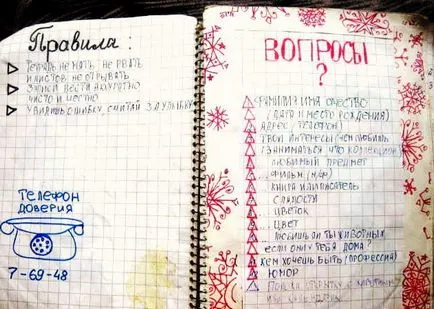 Правила:
Тетрадь не мять, не рвать
и листов не отрывать
Записи вести аккуратно
чисто и честно
Увидишь ошибку, считай за улыбку
ТЕЛЕФОН
ДОВЕРИЯ
7-69-48
ВОПРОСЫ
?
ФАМИЛИЯ ИМЯ ОЧЕСТВО
(ДАТА И МЕСТО РОЖДЕНИЯ)
АДРЕС (ТЕЛЕФОН)
ТВОИ ИНТЕРЕСЫ (ЧЕМ ЛЮБИШЬ
ЗАНИМАТЬСЯ ЧТО КОЛЛЕКЦИОН
ЛЮБИМЫЙ ПРЕДМЕТ
...ФИЛЬМ (М/Ф)
КНИГА И ПИСАТЕЛЬ
СЛАДОСТИ
...ЦВЕТОК
...ЦВЕТ
ЛЮБИШЬ ЛИ ТЫ ЖИВОТНЫХ
ЕСЛИ ОНИ У ТЕБЯ ДОМА?
КЕМ ХОЧЕШЬ БЫТЬ (ПРОФЕССИЯ)
ЮМОР
ОТКРЫТКУ С
ИЛИ